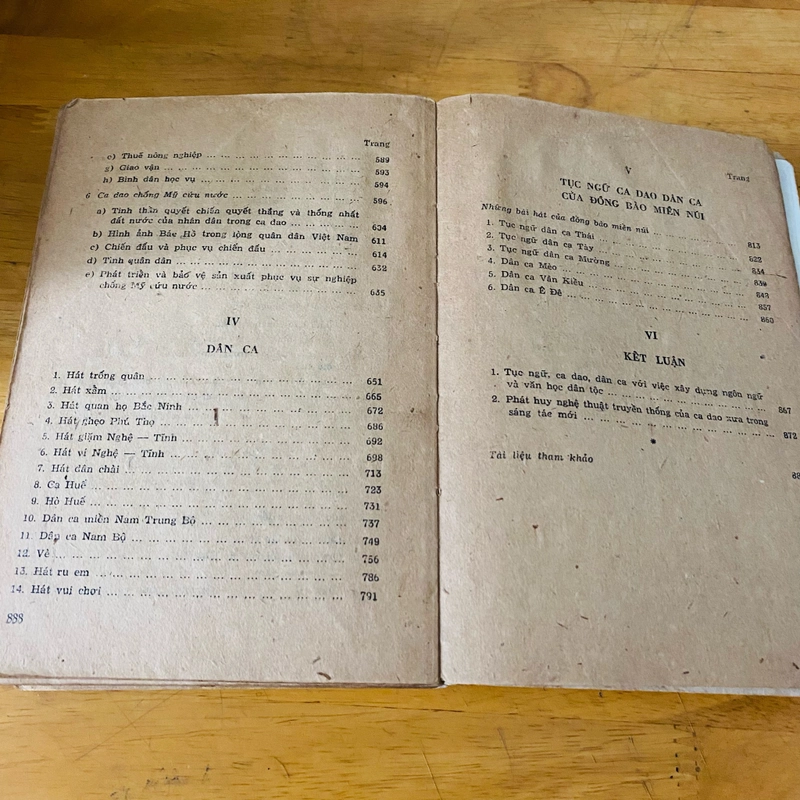 Trang
e) Thuế nông nghiệp ... 589
g) Giao vận ... 593
h) Bình dân học vụ ... 594
6 Ca dao chống Mỹ cứu nước ... 596
a) Tinh thần quyết chiến quyết thắng và thống nhất
đất nước của nhân dân trong ca dao ... 604
b) Hình ảnh Bác Hồ trong lòng quân dân Việt Nam 611
c) Chiến đấu và phục vụ chiến đấu ... 614
d) Tình quân dân ... 632
e) Phát triển và bảo vệ sản xuất phục vụ sự nghiệp
chống Mỹ cứu nước ... 635
IV
DÂN CA
1. Hát trống quân ... 651
2. Hát xẩm ... 665
3. Hát quan họ Bắc Ninh ... 672
4. Hát ghẹo Phú Thọ ... 686
5. Hát giặm Nghệ — Tĩnh ... 692
6. Hát ví Nghệ — Tĩnh ... 698
7. Hát dân chài ... 713
8. Ca Huế ... 723
9. Hò Huế ... 731
10. Dân ca miền Nam Trung Bộ ... 737
11. Dân ca Nam Bộ ... 749
12. Vè ... 756
13. Hát ru em ... 786
14. Hát vui chơi ... 791
888
V
Trang
TỤC NGỮ CA DAO DÂN CA
CỦA ĐỒNG BÀO MIỀN NÚI
Những bài hát của đồng bào miền núi ... 813
1. Tục ngữ dân ca Thái ... 822
2. Tục ngữ dân ca Tày ... 834
3. Tục ngữ dân ca Mường ... 839
4. Dân ca Mèo ... 843
5. Dân ca Vân Kiều ... 857
6. Dân ca Ê Đê ... 860
VI
KẾT LUẬN
1. Tục ngữ, ca dao, dân ca với việc xây dựng ngôn ngữ
và văn học dân tộc ... 867
2. Phát huy nghệ thuật truyền thống của ca dao xưa trong
sáng tác mới ... 872
Tài liệu tham khảo